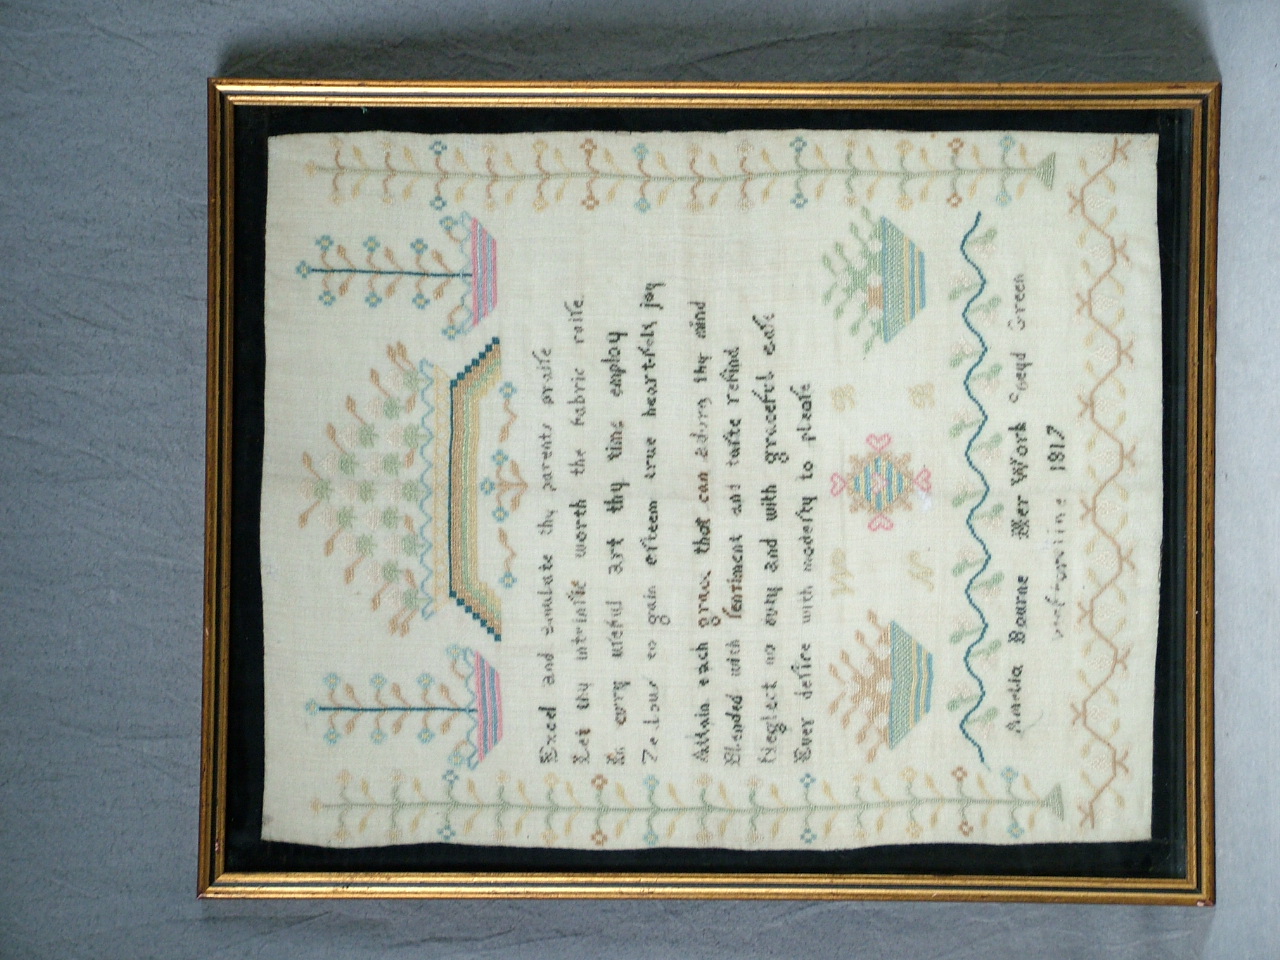 Excel and emulate thy parents praiſe
Let thy intrinſic worth the fabric raiſe
In every uſeful art thy time employ
Zealous to gain eſteem true heartfelt joy
Attain each grace that can adorn thy mind
Blended with ſentiment and taſte refind
Neglect no duty and with graceful eaſe
Ever deſire with modeſty to pleaſe
Bourne Her Work Coeyd Green
1817